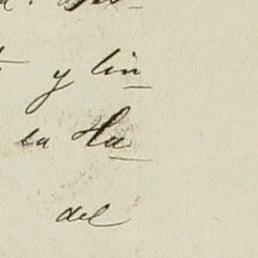 y lin
la Ha
del